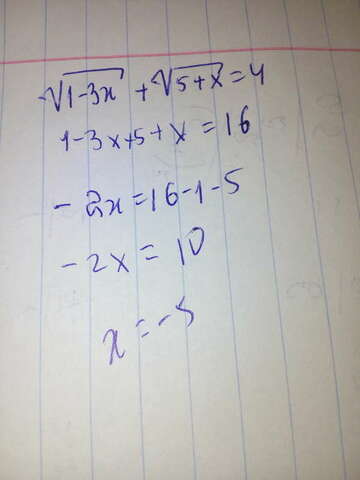 √1-3x + √5+x = 4
1-3x+5+x = 16
-2x = 16-1-5
-2x = 10
x = -5